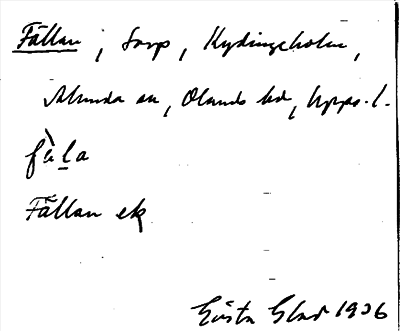 Fällan, torp, Kydingeholm,
Alunda sn, Olands hd, Upps. l.
fäla
Fällan ek
Gösta Edv 1936